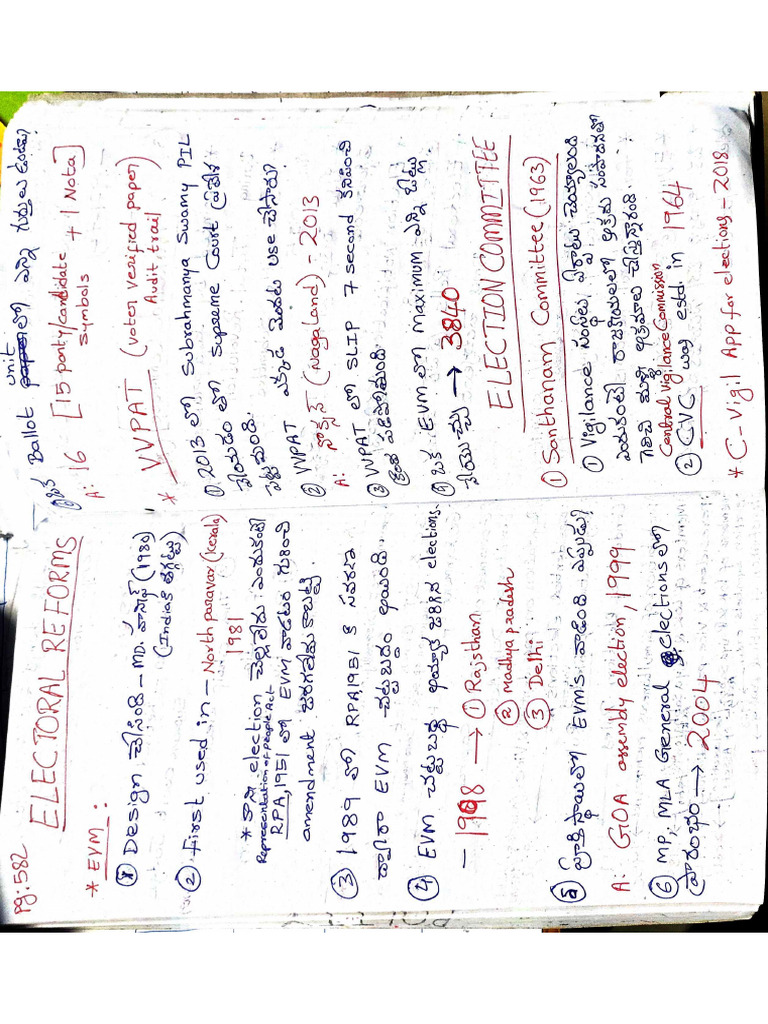 pg:582
ELECTORAL REFORMS
* EVM_:
① Design చేసింది - MD. హనీఫ్ (1980)
(Indiaకి తగ్గట్టు)
② First used in - North paravar (Kerala)
1981
* కానీ election చెల్లలేదు ఎందుకంటే
Representation of people Act
RPA, 1951 లో EVM వాడటం గురించి
amendment జరగలేదు కాబట్టి.
③ 1989 లో RPA,1951 కి సవరణ
ద్వారా EVM చట్టబద్ధం అయింది.
④ EVM చట్టబద్ధం అయ్యాక జరిగిన elections.
- 1998 → ① Rajsthan
② Madhya pradesh
③ Delhi
⑤ పూర్తి స్థాయిలో EVM's వాడింది ఎప్పుడు?
A: GOA assembly election, 1999
⑥ MP, MLA General elections లో
ప్రారంభం → 2004
① ఒక Ballot unit లో ఎన్ని గుర్తులు ఉంటాయి?
A: 16 [15 party/candidate + 1 Nota]
symbols
* VVPAT (voter verified paper)
Audit trail
①. 2013 లో Subrahmanya Swamy PIL
వేయడం లో Supreme Court ప్రవేశ
పెట్టమంది.
② VVPAT ఎక్కడ మొదట use చేసారు?
A: నాక్సన్ (Nagaland) - 2013
③ VVPAT లో SLIP 7 second కనిపించి
క్రింద పడిపోతుంది
④ ఒక EVM లో maximum ఎన్ని ఓట్లు
వేయచ్చు → 3840
ELECTION COMMITTEE
① Santhanam Committee (1963)
① Vigilance సంస్థలు ఏర్పాటు చెయ్యాలంది
ఎందుకంటే రాజకీయలలో అక్రమ సంపాదనలో
గురించి మళ్లీ అక్రమాలు చేస్తున్నారంది.
Central Vigilance Commission
② CVC was estd. in 1964
* C-Vigil App for elections - 2018